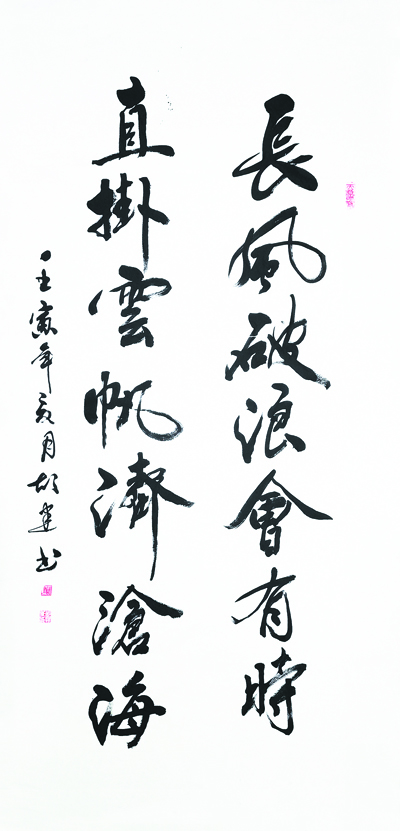 長風破浪會有時
直掛雲帆濟滄海
壬寅年亥月胡建书